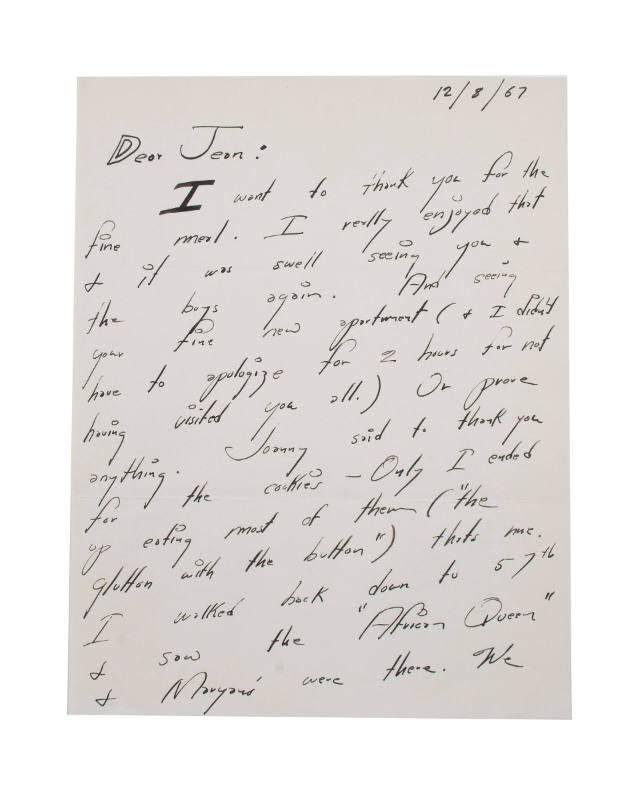 12/8/67
Dear Jean:
I want to thank you for the
fine meal. I really enjoyed that
& it was swell seeing you &
the boys again. And seeing
your fine new apartment (& I didn't
have to apologize for 2 hours for not
having visited you all.) Or prove
anything. Joanny said to thank you
for the cookies - Only I ended
up eating most of them ("the
glutton with the button") thats me.
I walked back down to 57th
& saw the "African Queen"
& Maryans were there. We